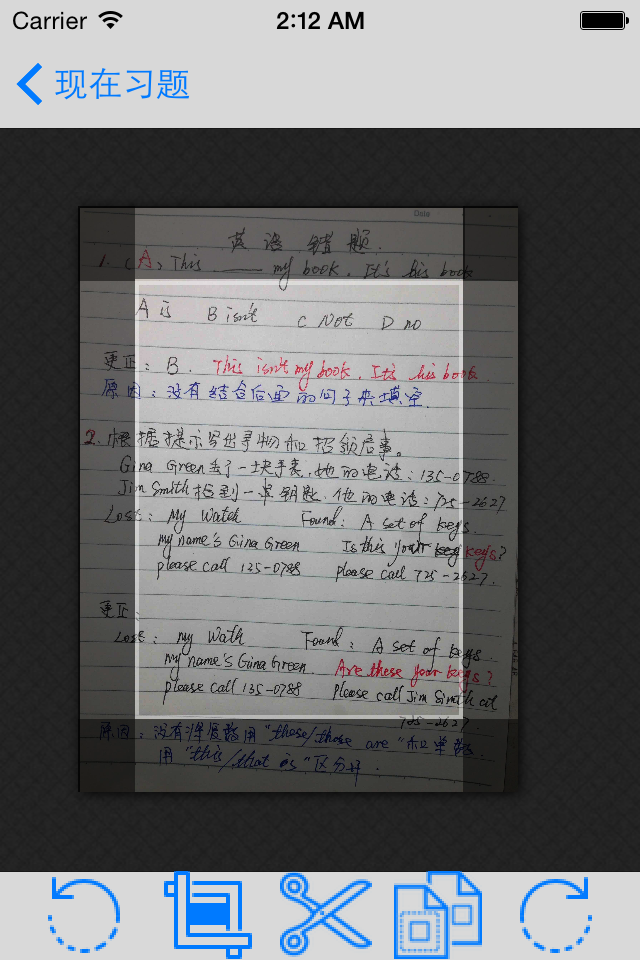 Carrier 2:12 AM
现在习题
Date
英语错题.
1. (A) This ____ my book. It's his book
A is B isn't C Not D no
更正: B. This isn't my book. It's his book.
原因: 没有结合后面的句子来填空.
2. 根据提示写出寻物和招领启事。
Gina Green丢了一块手表, 她的电话: 135-0788.
Jim Smith捡到一串钥匙. 他的电话: 725-2627
Lost: My Watch Found: A set of keys
my name's Gina Green Is this your keys?
please call 125-0788 please call 725-2627.
更正:
Lost: my Wath Found: A set of keys
my name's Gina Green Are these your keys?
please call 135-0788 please call Jim Smith at
725-2627.
原因: 没有将复数用 "these/those are" 和单数
用 "this/that is" 区分开.